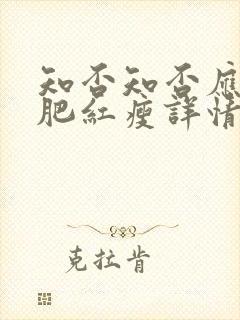 知否知否應
肥紅瘦詳情
克拉肯